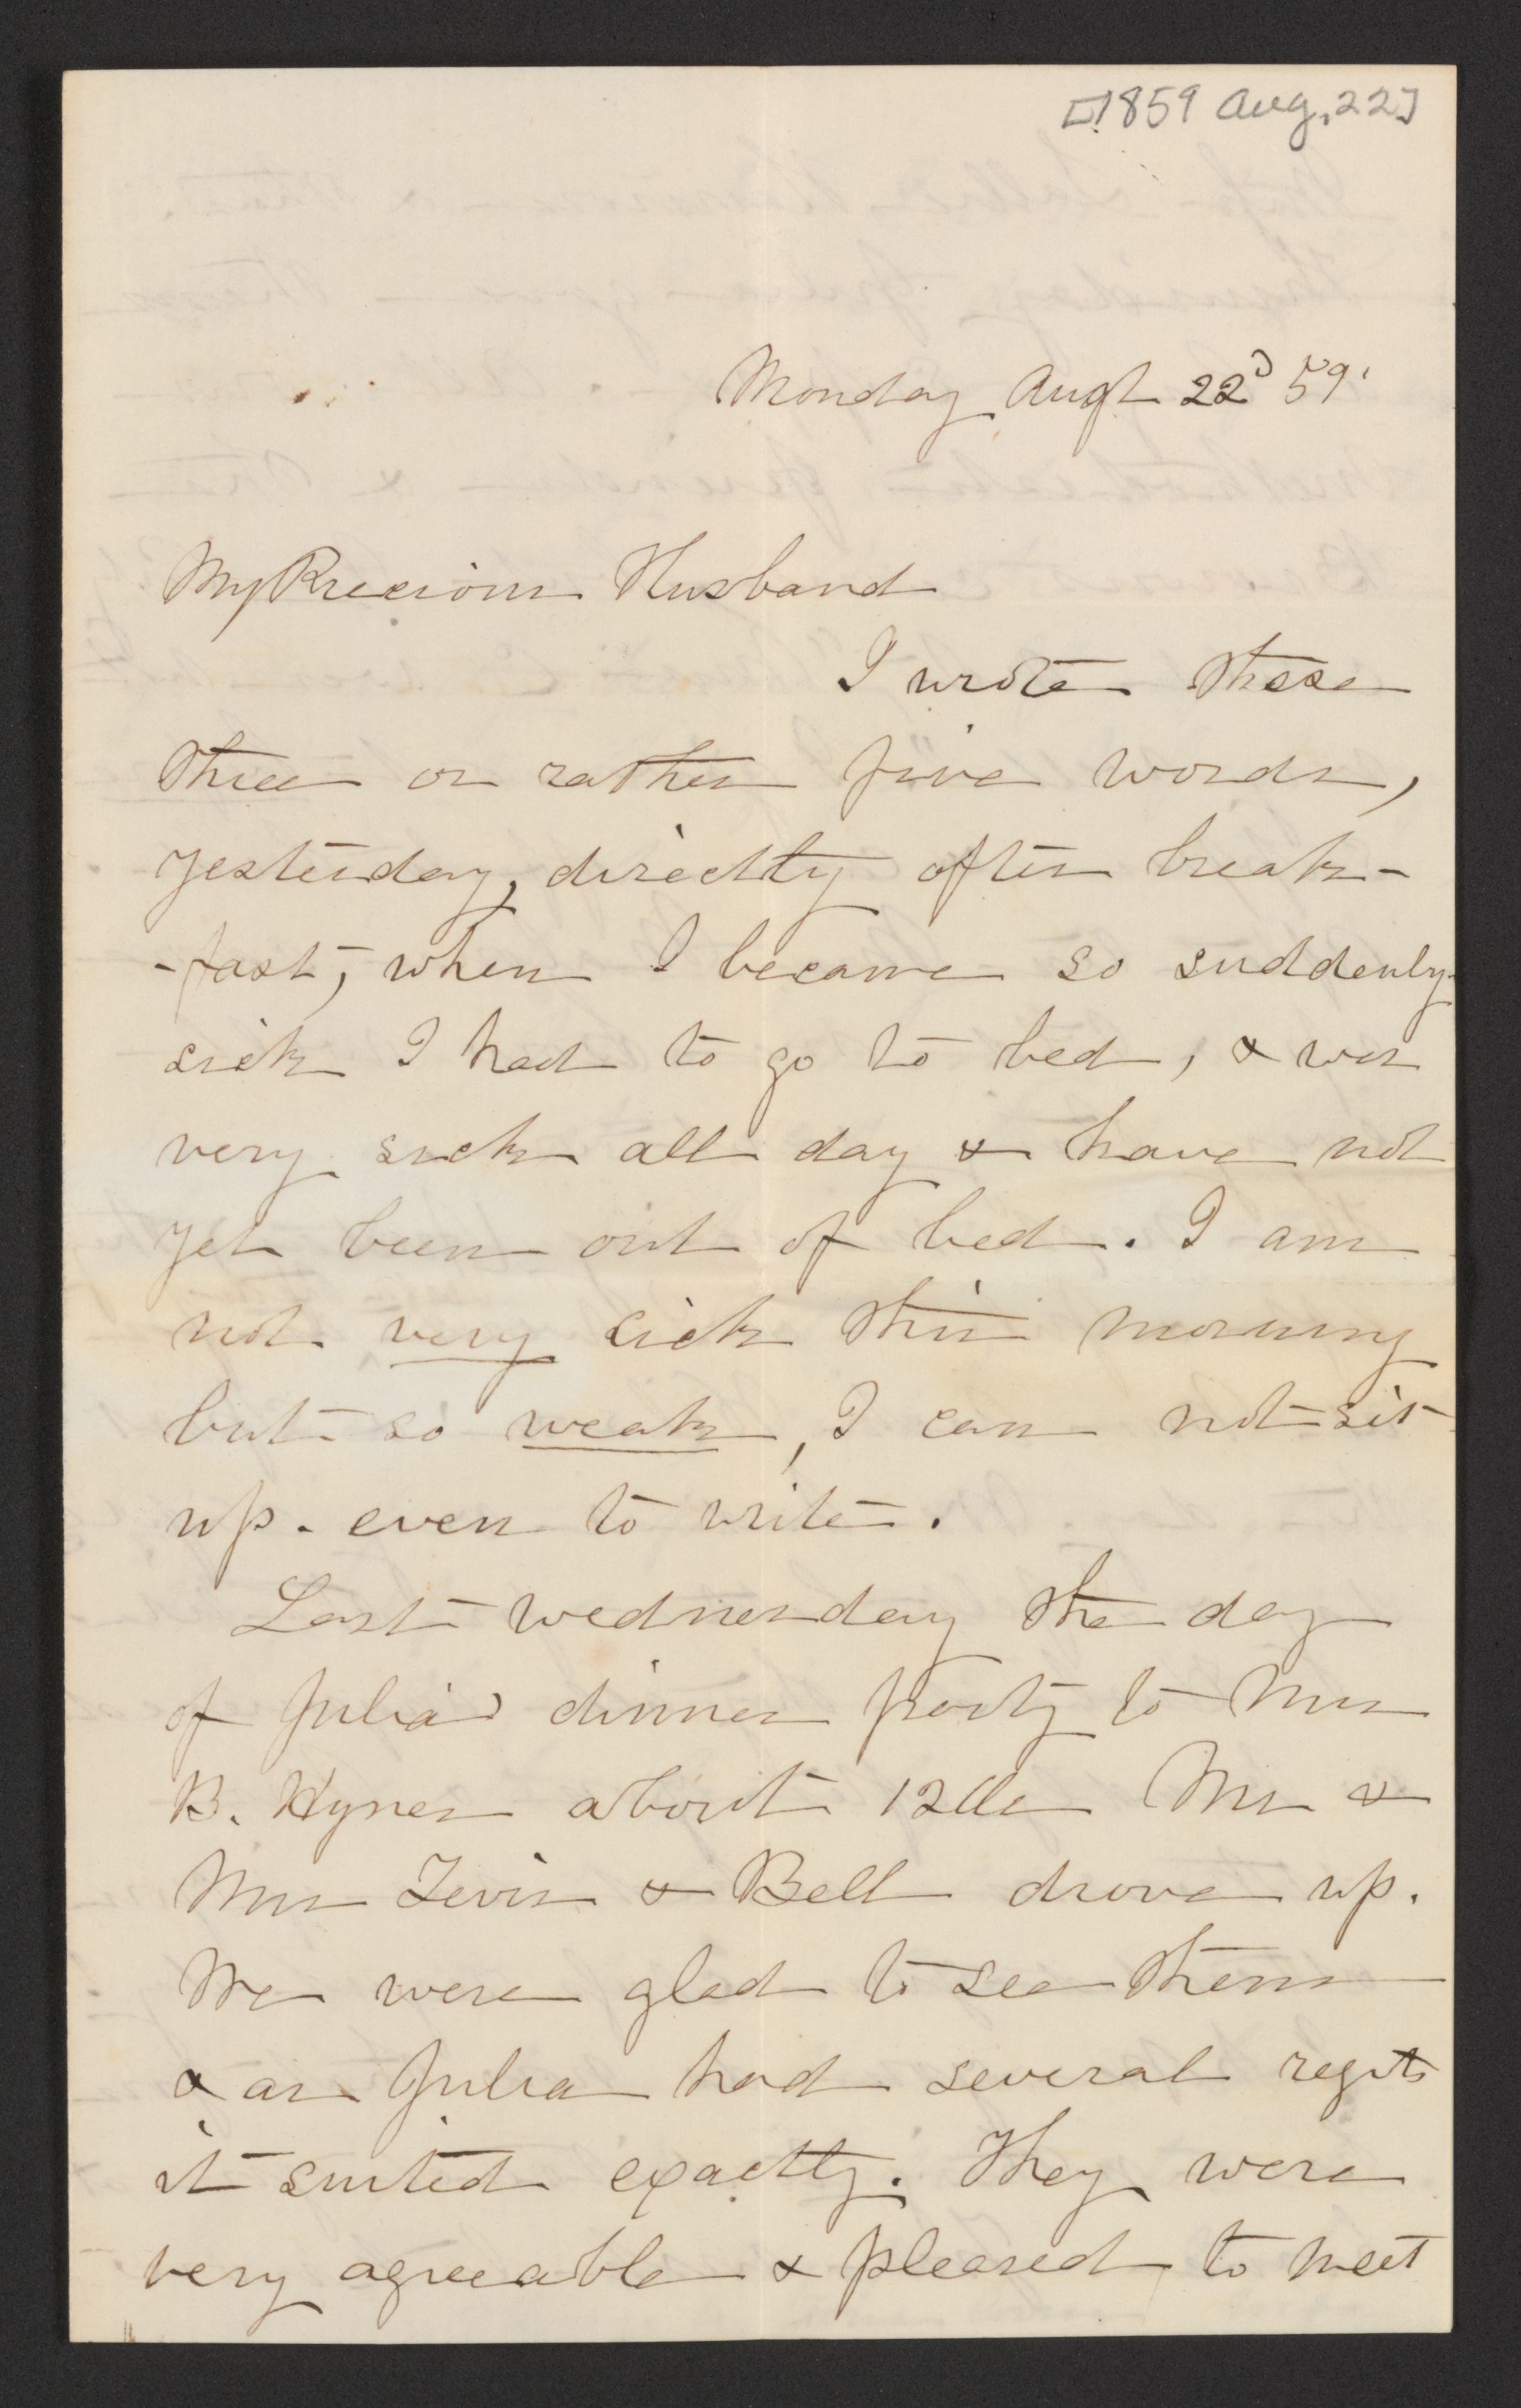 [1859 Aug. 22]
Monday Augt 22d 59'
My Precious Husband
I wrote these
three or rather five words,
yesterday, directly after break-
-fast, when I became so suddenly
sick I had to go to bed, & was
very sick all day & have not
yet been out of bed. I am
not very sick this morning
but so weak, I can not sit
up. even to write.
Last Wednesday the day
of Julia's dinner party to Mrs
B. Hynes about 12 Mr &
Mrs Tevis & Bell drove up.
We were glad to see them
& as Julia had several regts
it suited exactly. They were
very agreeable & pleased to meet